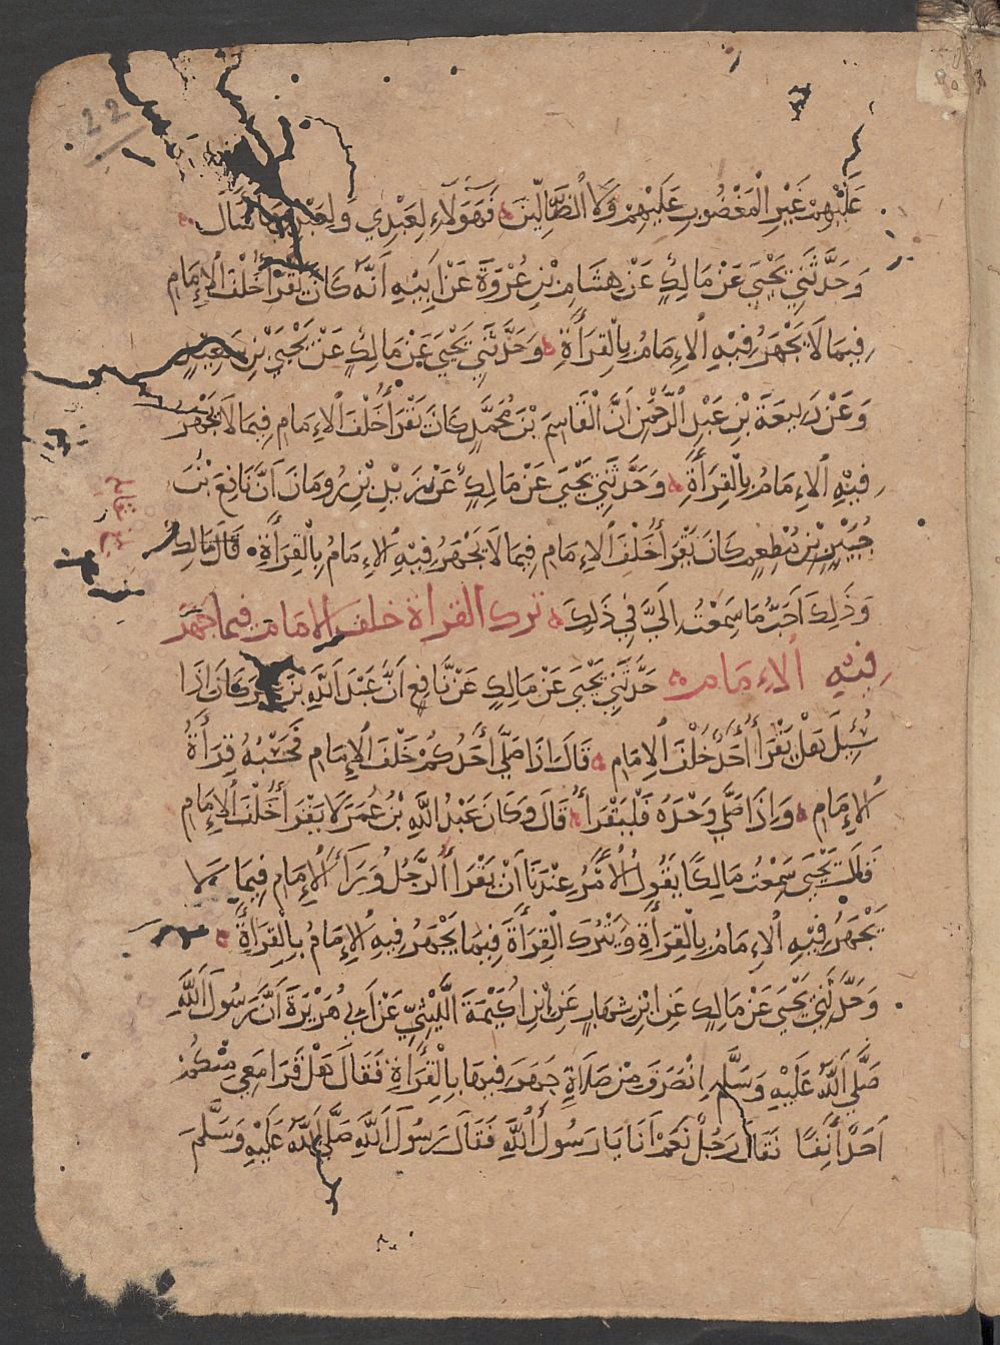 22
عَلَيْهِمْ غَيْرِ الْمَغْضُوبِ عَلَيْهِمْ وَلَا الضَّالِّينَ فَهَؤُلَاءِ لِعَبْدِي وَلِعَبْدِي مَا سَأَلَ
وَحَدَّثَنِي يَحْيَى عَنْ مَالِكٍ عَنْ هِشَامِ بْنِ عُرْوَةَ عَنْ أَبِيْهِ أَنَّهُ كَانَ يَقْرَأُ خَلْفَ الْإِمَامِ
فِيمَا لَا يَجْهَرُ فِيْهِ الْإِمَامُ بِالْقِرَأَةِ وَحَدَّثَنِي يَحْيَى عَنْ مَالِكٍ عَنْ يَحْيَى بْنِ سَعِيْدٍ
وَعَنْ رَبِيعَةَ بْنِ عَبْدِ الرَّحْمَنِ أَنَّ الْقَاسِمَ بْنَ مُحَمَّدٍ كَانَ يَقْرَأُ خَلْفَ الْإِمَامِ فِيمَا لَا يَجْهَرُ
فِيْهِ الْإِمَامُ بِالْقِرَأَةِ وَحَدَّثَنِي يَحْيَى عَنْ مَالِكٍ عَنْ يَزِيْدَ بْنِ رُومَانَ أَنَّ نَافِعَ بْنَ
جُبَيْرِ بْنِ مُطْعِمٍ كَانَ يَقْرَأُ خَلْفَ الْإِمَامِ فِيمَا لَا يَجْهَرُ فِيْهِ الْإِمَامُ بِالْقِرَأَةِ قَالَ مَالِكٌ
وَذَلِكَ أَحَبُّ مَا سَمِعْتُ إِلَيَّ فِي ذَلِكَ ترك القراة خلف الامام فيما جهر
فِيْهِ الْإِمَامُ حَدَّثَنِي يَحْيَى عَنْ مَالِكٍ عَنْ نَّافِعٍ أَنَّ عَبْدَ اللَّهِ بْنَ عُمَرَ كَانَ إِذَا
سُئِلَ هَلْ يَقْرَأُ أَحَدٌ خَلْفَ الْإِمَامِ قَالَ إِذَا صَلَّى أَحَدُكُمْ خَلْفَ الْإِمَامِ فَحَسْبُهُ قِرَأَةُ
الْإِمَامِ وَإِذَا صَلَّى وَحْدَهُ فَلْيَقْرَأْ قَالَ وَكَانَ عَبْدُ اللَّهِ بْنُ عُمَرَ لَا يَقْرَأُ خَلْفَ الْإِمَامِ
قَالَ يَحْيَى سَمِعْتُ مَالِكًا يَقُولُ الْأَمْرُ عِنْدَنَا أَنْ يَقْرَأَ الرَّجُلُ وَرَأَ الْإِمَامِ فِيمَا لَا
يَجْهَرُ فِيْهِ الْإِمَامُ بِالْقِرَأَةِ وَيَتْرُكَ الْقِرَأَةَ فِيمَا يَجْهَرُ فِيهِ الْإِمَامُ بِالْقِرَأَةِ
وَحَدَّثَنِي يَحْيَى عَنْ مَالِكٍ عَنِ ابْنِ شِهَابٍ عَنِ ابْنِ أُكَيْمَةَ اللَّيْثِيِّ عَنْ أَبِي هُرَيْرَةَ أَنَّ رَسُولَ اللَّهِ
صَلَّى اللَّهُ عَلَيْهِ وَسَلَّمَ انْصَرَفَ مِنْ صَلَاةٍ جَهَرَ فِيهَا بِالْقِرَأَةِ فَقَالَ هَلْ قَرَا مَعِي مِنْكُمْ
أَحَدٌ أَنِفًا فَقَالَ رَجُلٌ نَعَمْ أَنَا يَا رَسُولَ اللَّهِ فَقَالَ رَسُولُ اللَّهِ صَلَّى اللَّهُ عَلَيْهِ وَسَلَّمَ